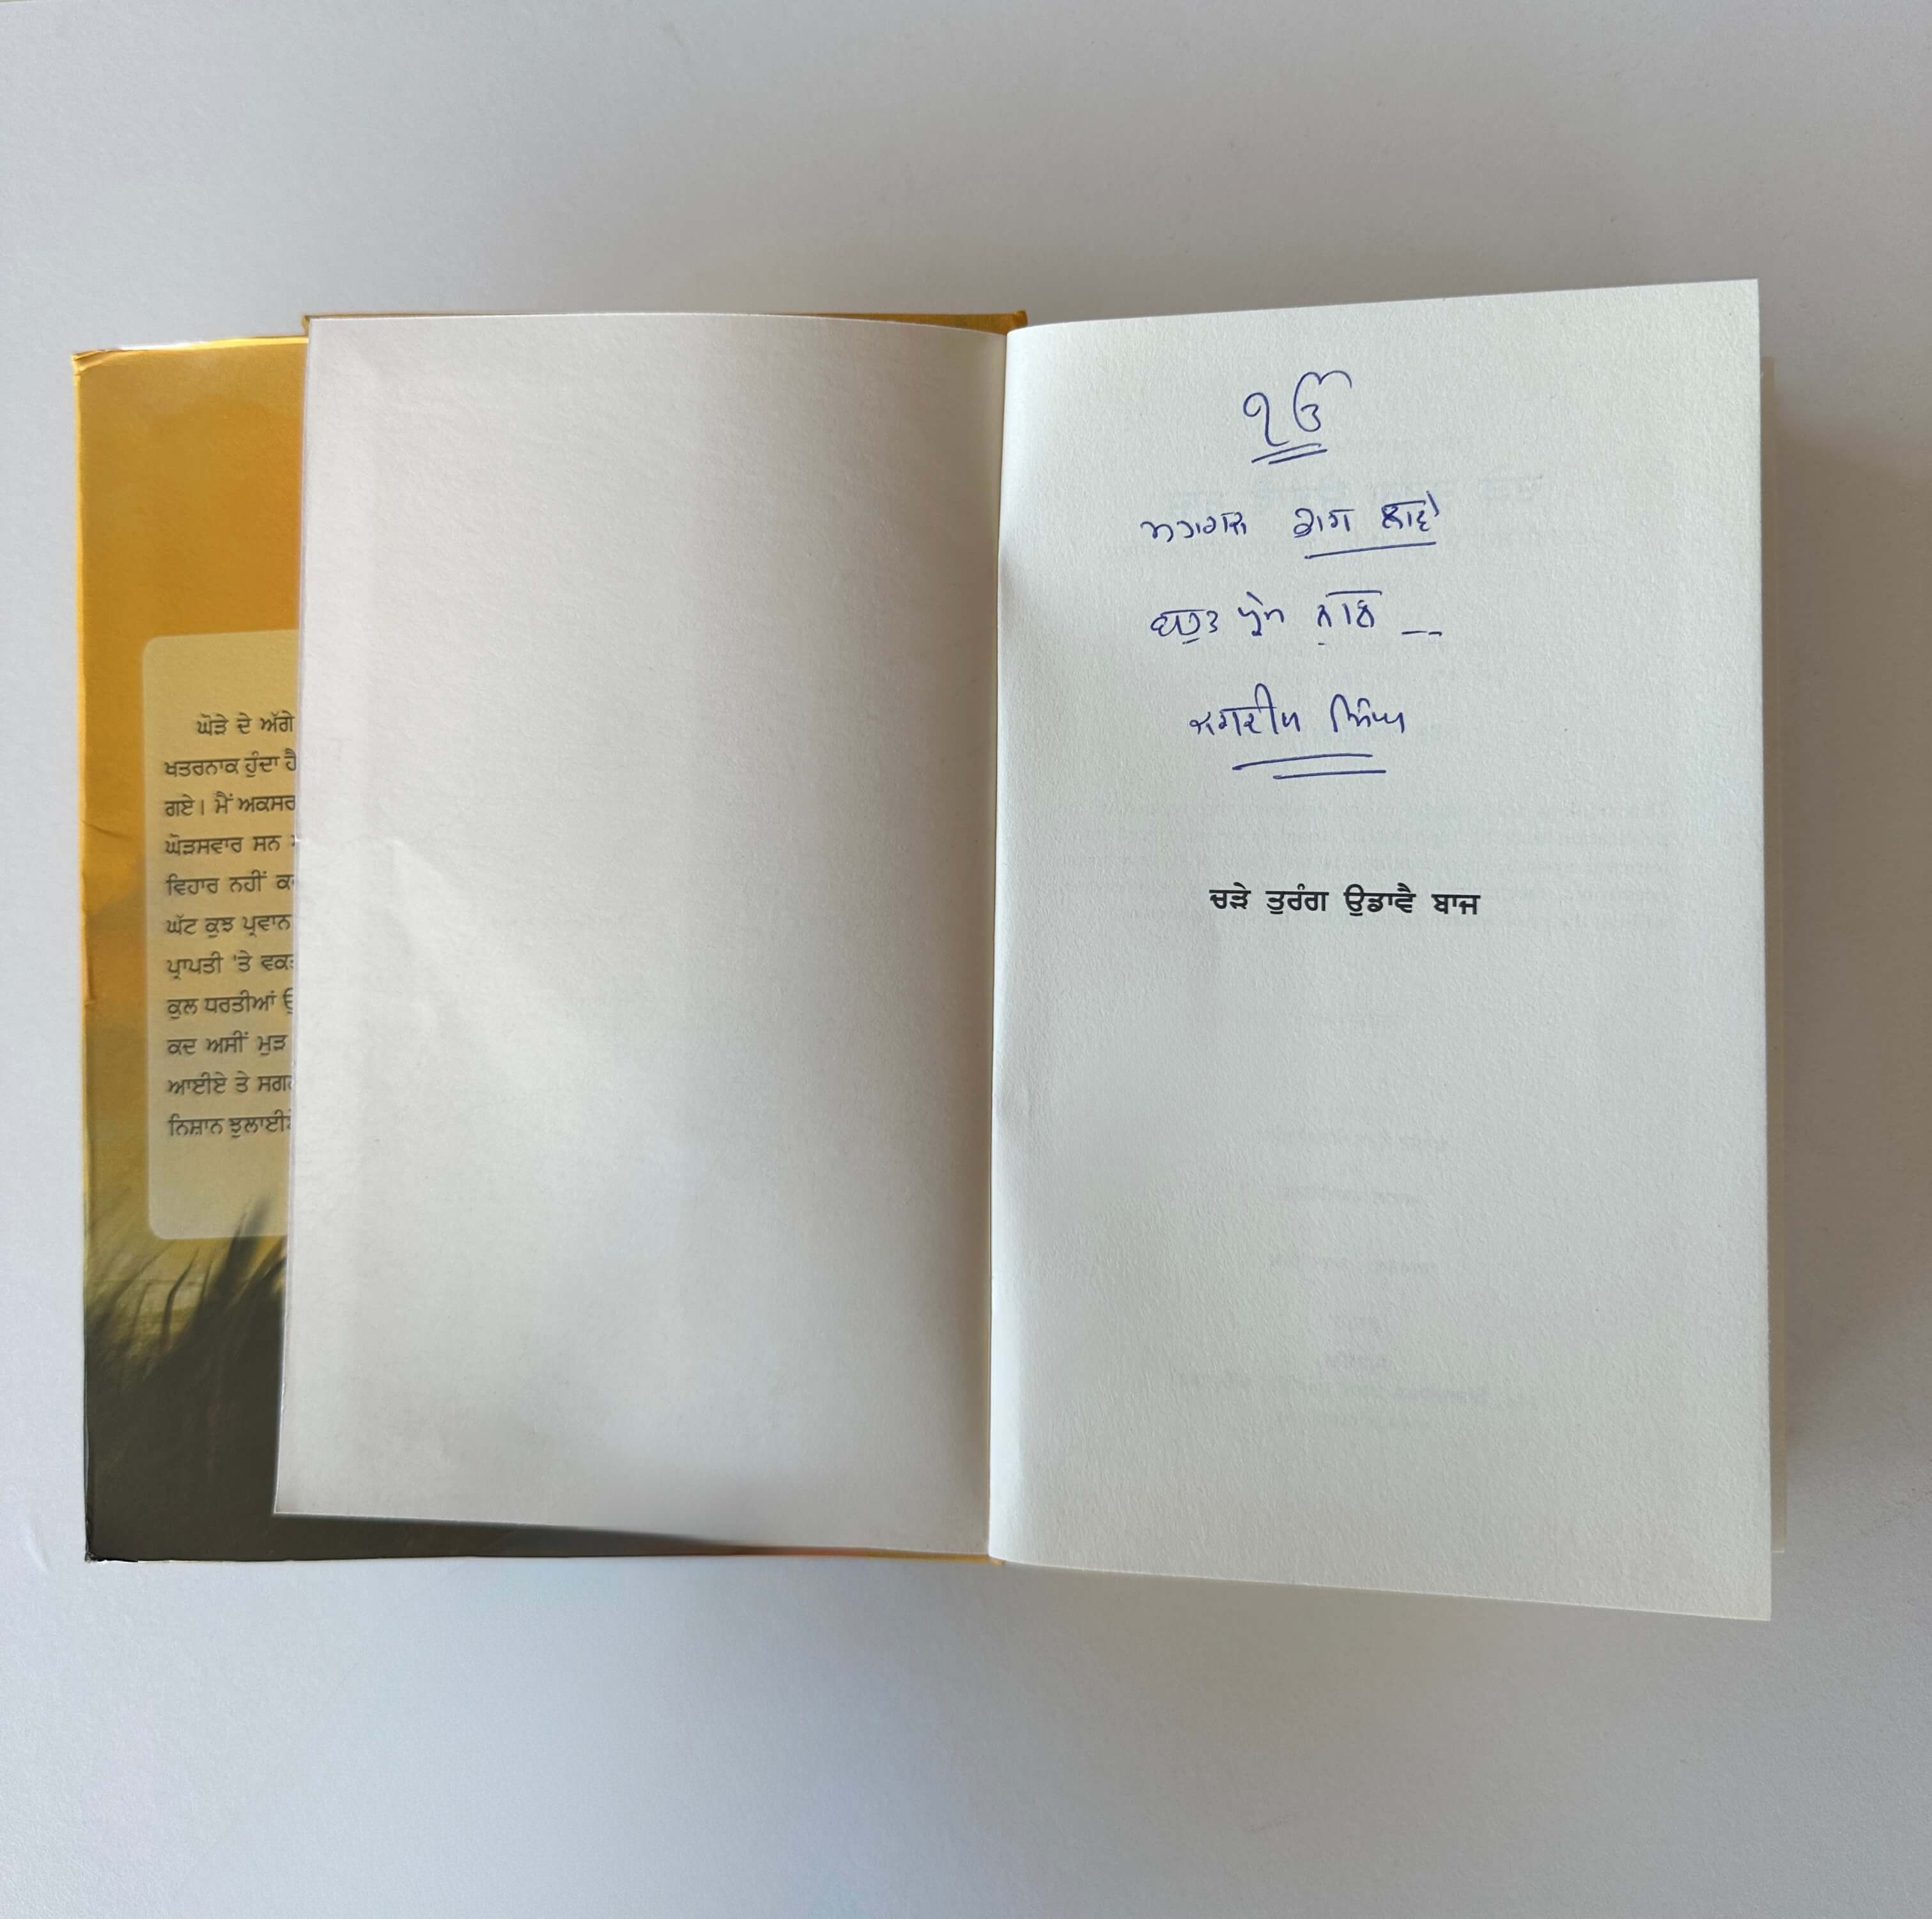 ਘੋੜੇ ਦੇ ਅੱਗੇ
ਖਤਰਨਾਕ ਹੁੰਦਾ ਹੈ
ਗਏ। ਮੈਂ ਅਕਸਰ
ਘੋੜਸਵਾਰ ਸਨ
ਵਿਹਾਰ ਨਹੀਂ
ਘੱਟ ਕੁਝ ਪ੍ਰਵਾਨ
ਪ੍ਰਾਪਤੀ 'ਤੇ
ਕੁਲ ਧਰਤੀਆਂ
ਕਦ ਅਸੀਂ ਮੁੜ
ਆਈਏ ਤੇ
ਨਿਸ਼ਾਨ
ੴ
ਬਹੁਤ ਪ੍ਰੇਮ ਨਾਲ --
ਜਗਦੀਪ ਸਿੰਘ
ਚੜੇ ਤੁਰੰਗ ਉਡਾਵੈ ਬਾਜ